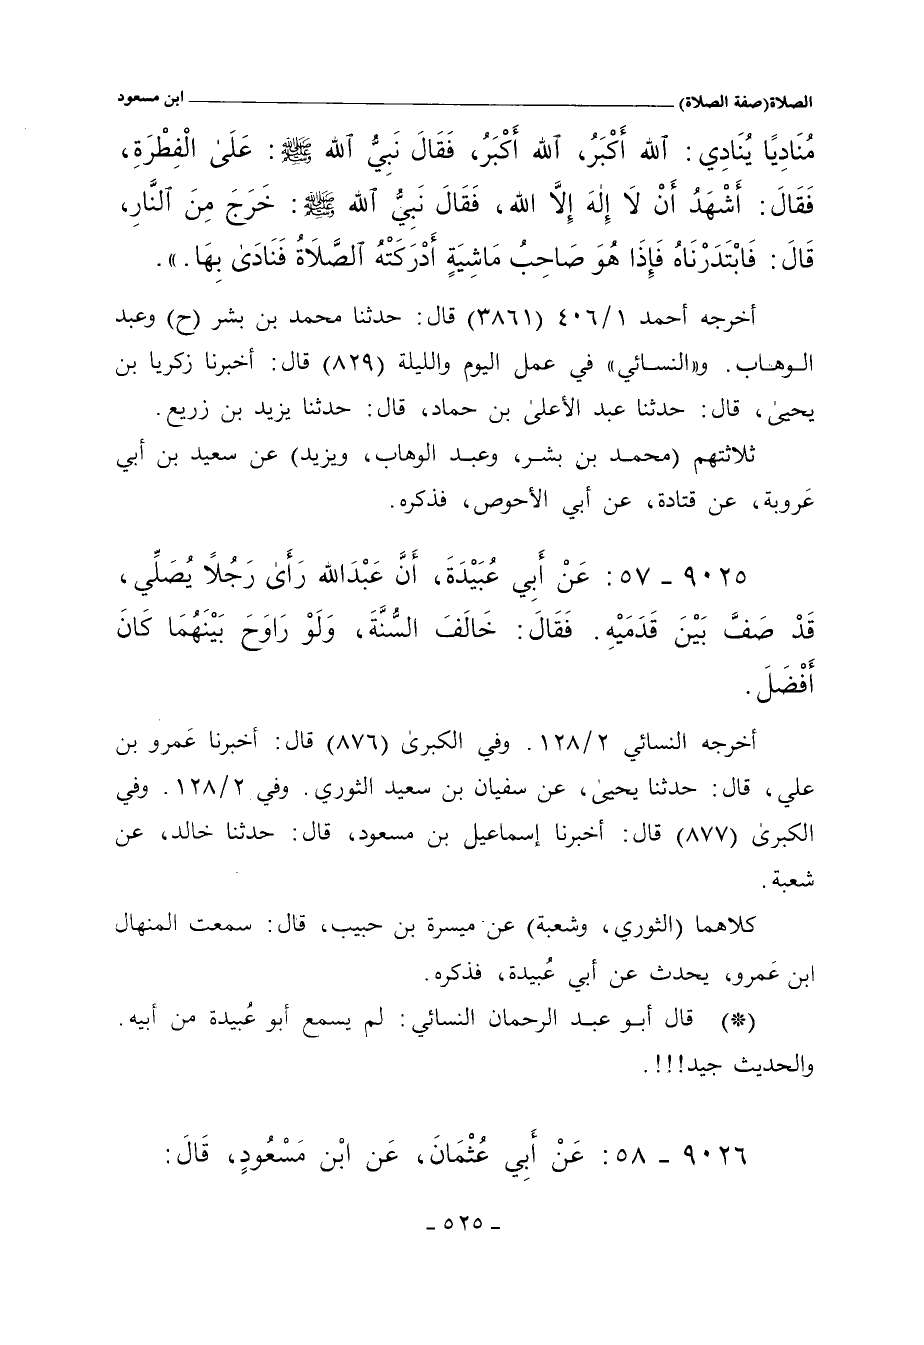 الصلاة(صفة الصلاة) ــــــــــــــــــــ ابن مسعود
مُنَادِيًا يُنَادِي: ٱلله أَكْبَرُ، ٱلله أَكْبَرُ، فَقَالَ نَبِيُّ ٱلله ﷺ: عَلَىٰ الْفِطْرَةِ،
فَقَالَ: أَشْهَدُ أَنْ لَا إِلٰهَ إِلاَّ الله، فَقَالَ نَبِيُّ ٱلله ﷺ: خَرَجَ مِنَ ٱلنَّارِ،
قَالَ: فَابْتَدَرْنَاهُ فَإِذَا هُوَ صَاحِبُ مَاشِيَةٍ أَدْرَكَتْهُ ٱلصَّلَاةُ فَنَادَىٰ بِهَا.».
أخرجه أحمد ٤٠٦/١ (٣٨٦١) قال: حدثنا محمد بن بشر (ح) وعبد
الوهاب. و«النسائي» في عمل اليوم والليلة (٨٢٩) قال: أخبرنا زكريا بن
يحيىٰ، قال: حدثنا عبد الأعلىٰ بن حماد، قال: حدثنا يزيد بن زريع.
ثلاثتهم (محمد بن بشر، وعبد الوهاب، ويزيد) عن سعيد بن أبي
عَروبة، عن قتادة، عن أبي الأحوص، فذكره.
٩٠٢٥ ـ ٥٧: عَنْ أَبِي عُبَيْدَةَ، أَنَّ عَبْدَالله رَأَىٰ رَجُلًا يُصَلِّي،
قَدْ صَفَّ بَيْنَ قَدَمَيْهِ. فَقَالَ: خَالَفَ السُّنَّةَ، وَلَوْ رَاوَحَ بَيْنَهُمَا كَانَ
أَفْضَلَ.
أخرجه النسائي ١٢٨/٢. وفي الكبرىٰ (٨٧٦) قال: أخبرنا عَمرو بن
علي، قال: حدثنا يحيىٰ، عن سفيان بن سعيد الثوري. وفي ١٢٨/٢. وفي
الكبرىٰ (٨٧٧) قال: أخبرنا إسماعيل بن مسعود، قال: حدثنا خالد، عن
شعبة.
كلاهما (الثوري، وشعبة) عن ميسرة بن حبيب، قال: سمعت المنهال
ابن عَمرو، يحدث عن أبي عُبيدة، فذكره.
(*) قال أبو عبد الرحمان النسائي: لم يسمع أبو عُبيدة من أبيه.
والحديث جيد!!!.
٩٠٢٦ ـ ٥٨: عَنْ أَبِي عُثْمَانَ، عَن ابْنِ مَسْعُودٍ، قَالَ:
ـ ٥٢٥ ـ